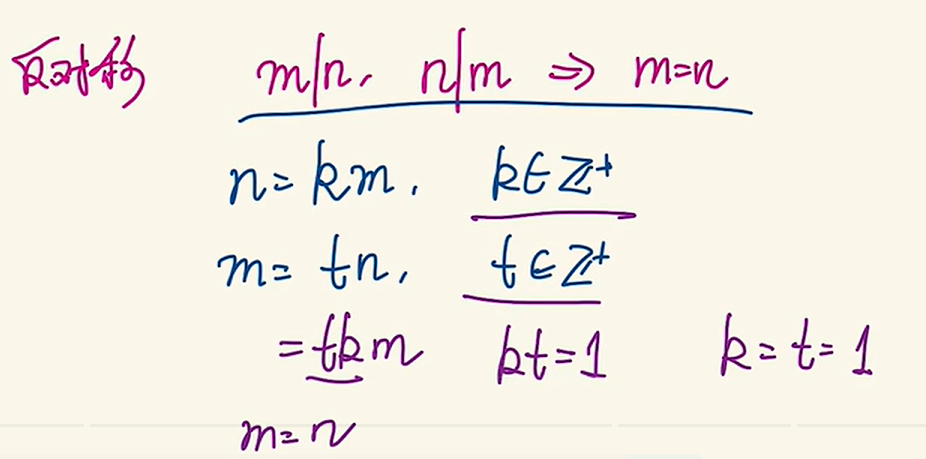 反对称 m|n, n|m ⇒ m=n
n=km, k∈ℤ⁺
m=tn, t∈ℤ⁺
=tkm kt=1 k=t=1
m=n